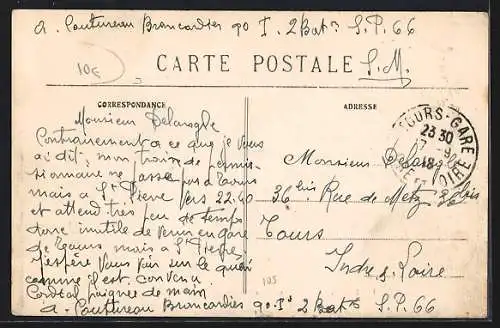 A. Coutureau Brancardier 90 I. 2 Bat. S.P. 66
10€
CARTE POSTALE S.M.
CORRESPONDANCE
ADRESSE
TOURS-GARE
23 30
7-9
18
INDRE ET LOIRE
Monsieur Delaroche
Contrairement a ce que je vous
ai dit, mon train de permis-
sionnaire ne passe pas a Tours
mais a St. Pierre vers 22.40
et attend très peu de temps
donc inutile de venir en gare
de Tours mais a St Pierre
j'espère vous voir sur le quai
comme il est convenu
Cordiale poignée de main
A. Coutureau Brancardier 90 I. 2 Bat. S.P. 66
Monsieur Delaroche
36 bis Rue de Metz
Tours
Indre & Loire
105